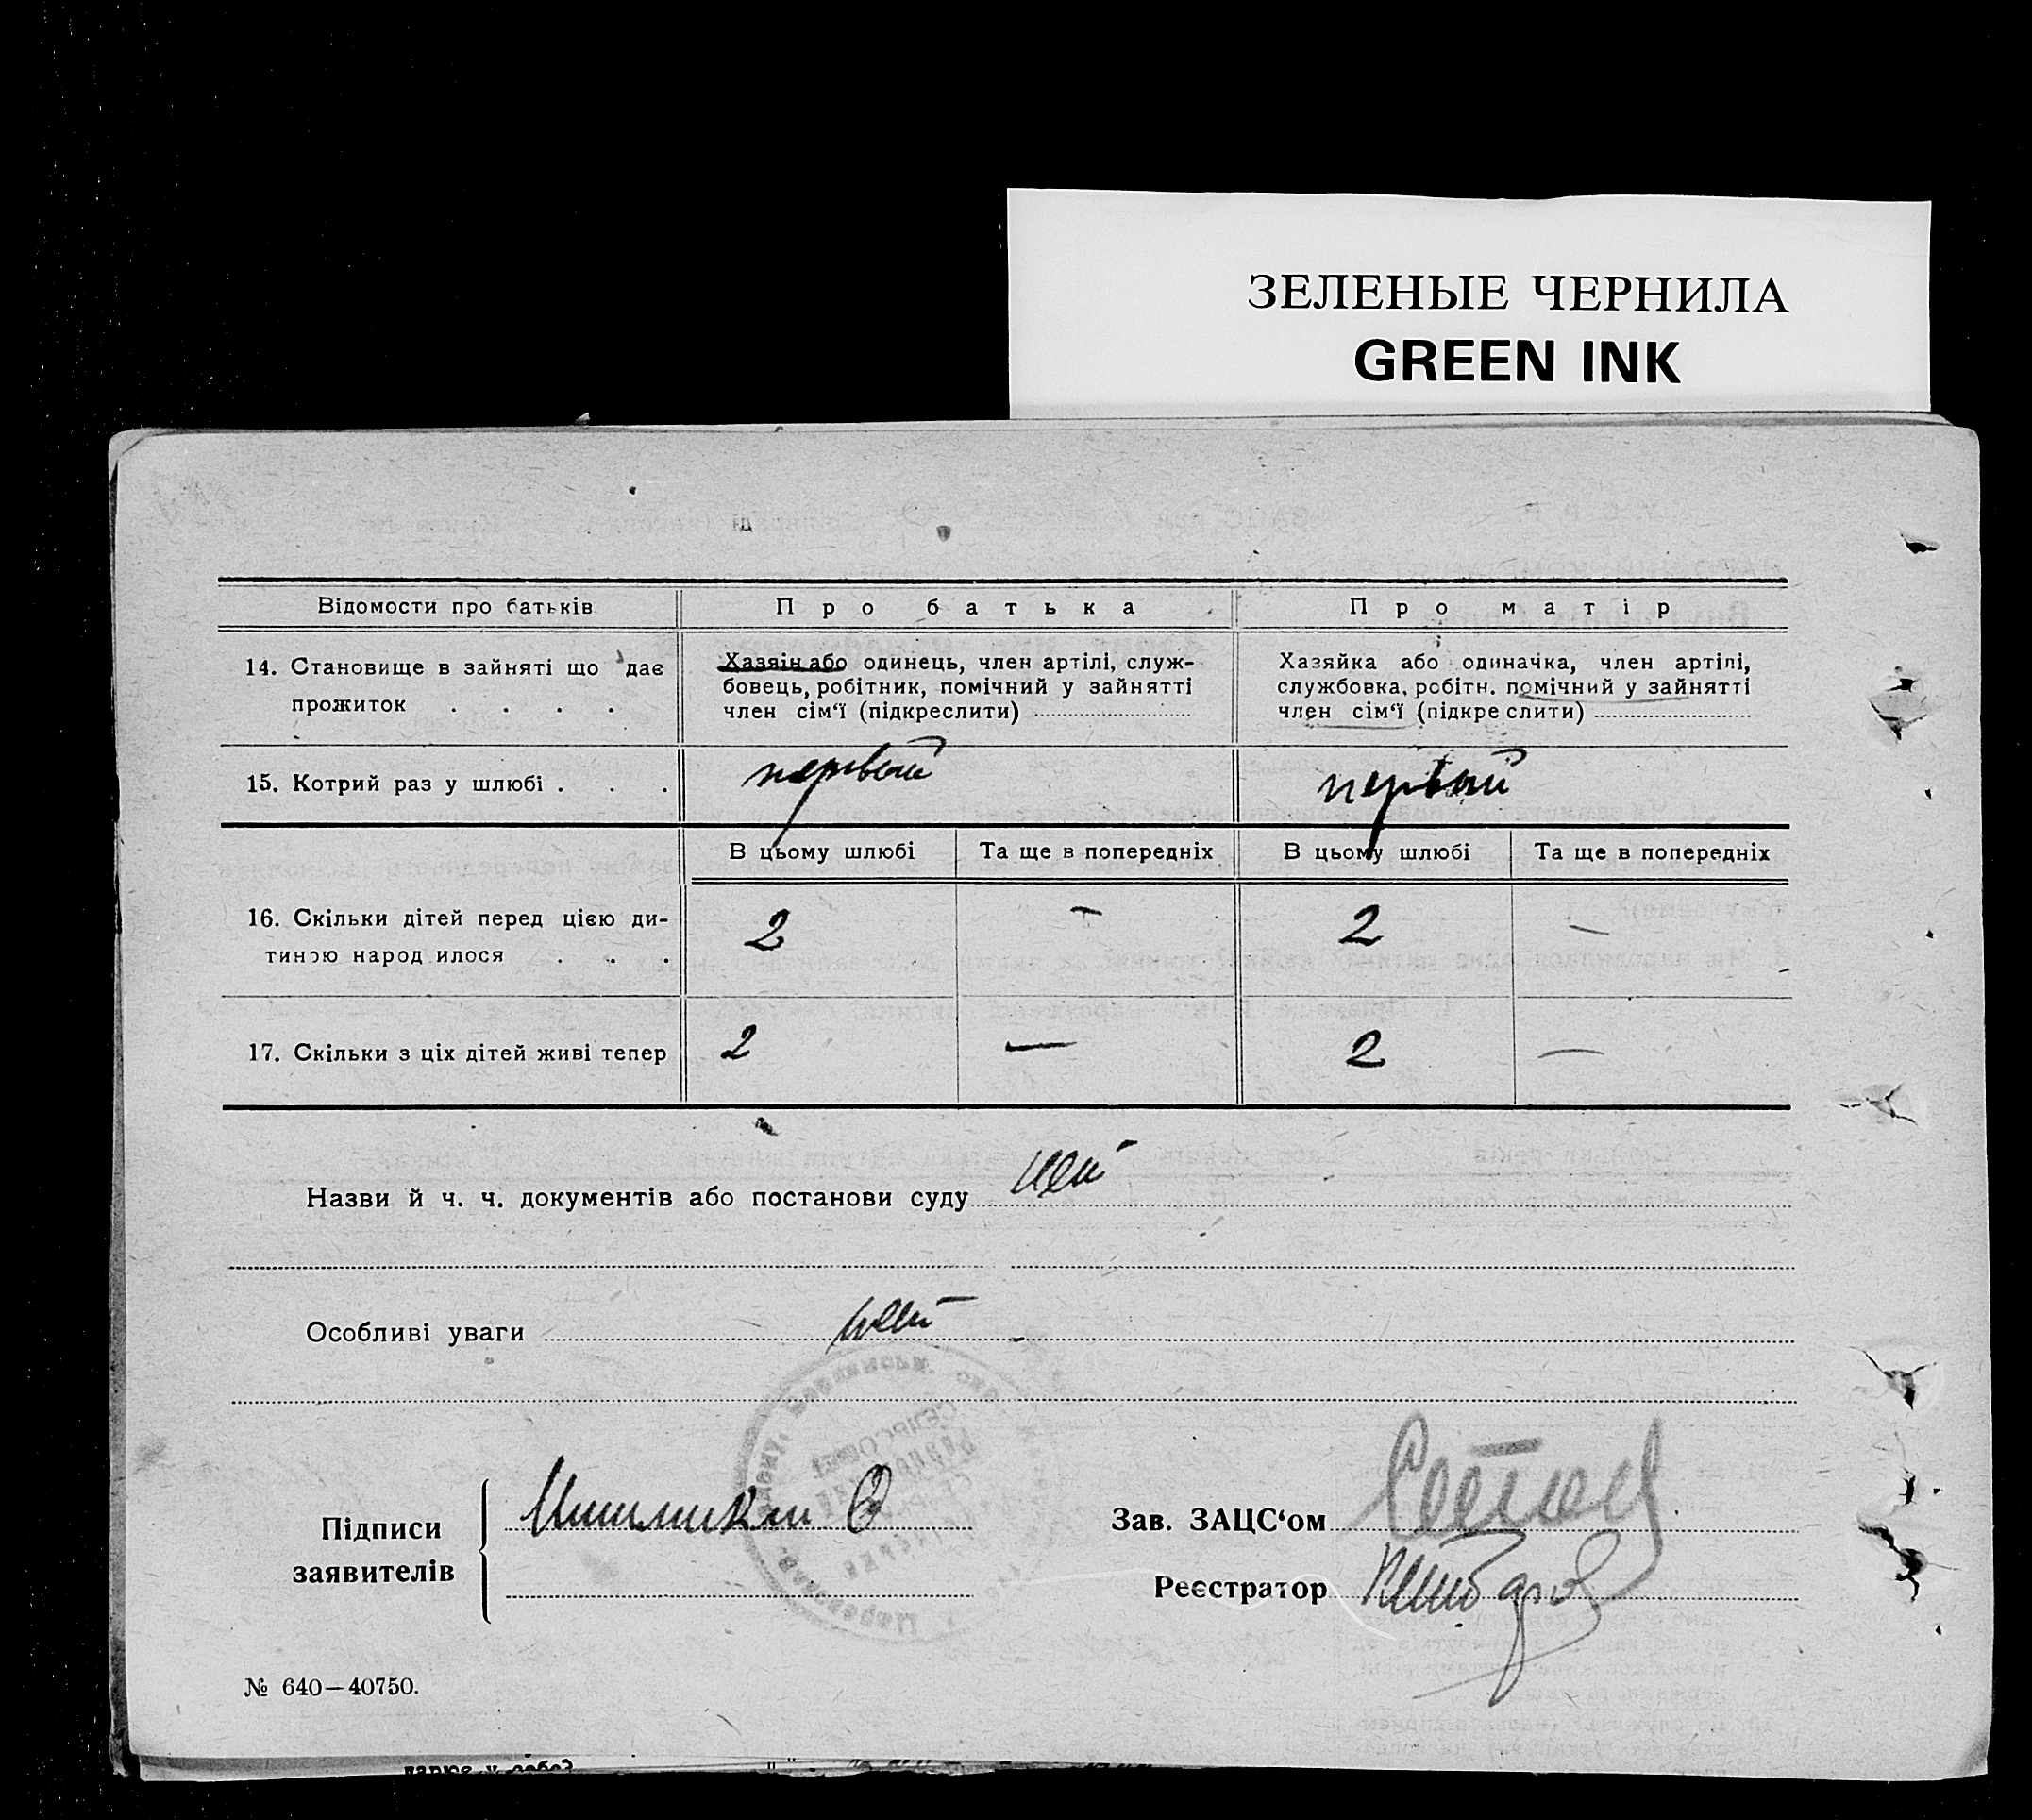 ЗЕЛЕНЫЕ ЧЕРНИЛА
GREEN INK
Відомости про батьків
Про батька
Про матір
14. Становище в зайняті що дає
прожиток . . . .
Хазяін або одинець, член артілі, служ-
бовець, робітник, помічний у зайнятті
член сім‘ї (підкреслити)
Хазяйка або одиначка, член артілі,
службовка, робітн. помічний у зайнятті
член сім‘ї (підкреслити)
15. Котрий раз у шлюбі . . .
первый
первый
В цьому шлюбі
Та ще в попередніх
В цьому шлюбі
Та ще в попередніх
16. Скільки дітей перед цією ди-
тиною народилося . . .
2
–
2
–
17. Скільки з ціх дітей живі тепер
2
—
2
—
Назви й ч. ч. документів або постанови суду нет
Особливі уваги нет
Підписи
заявителів
Зав. ЗАЦС‘ом
Реєстратор
№ 640—40750.